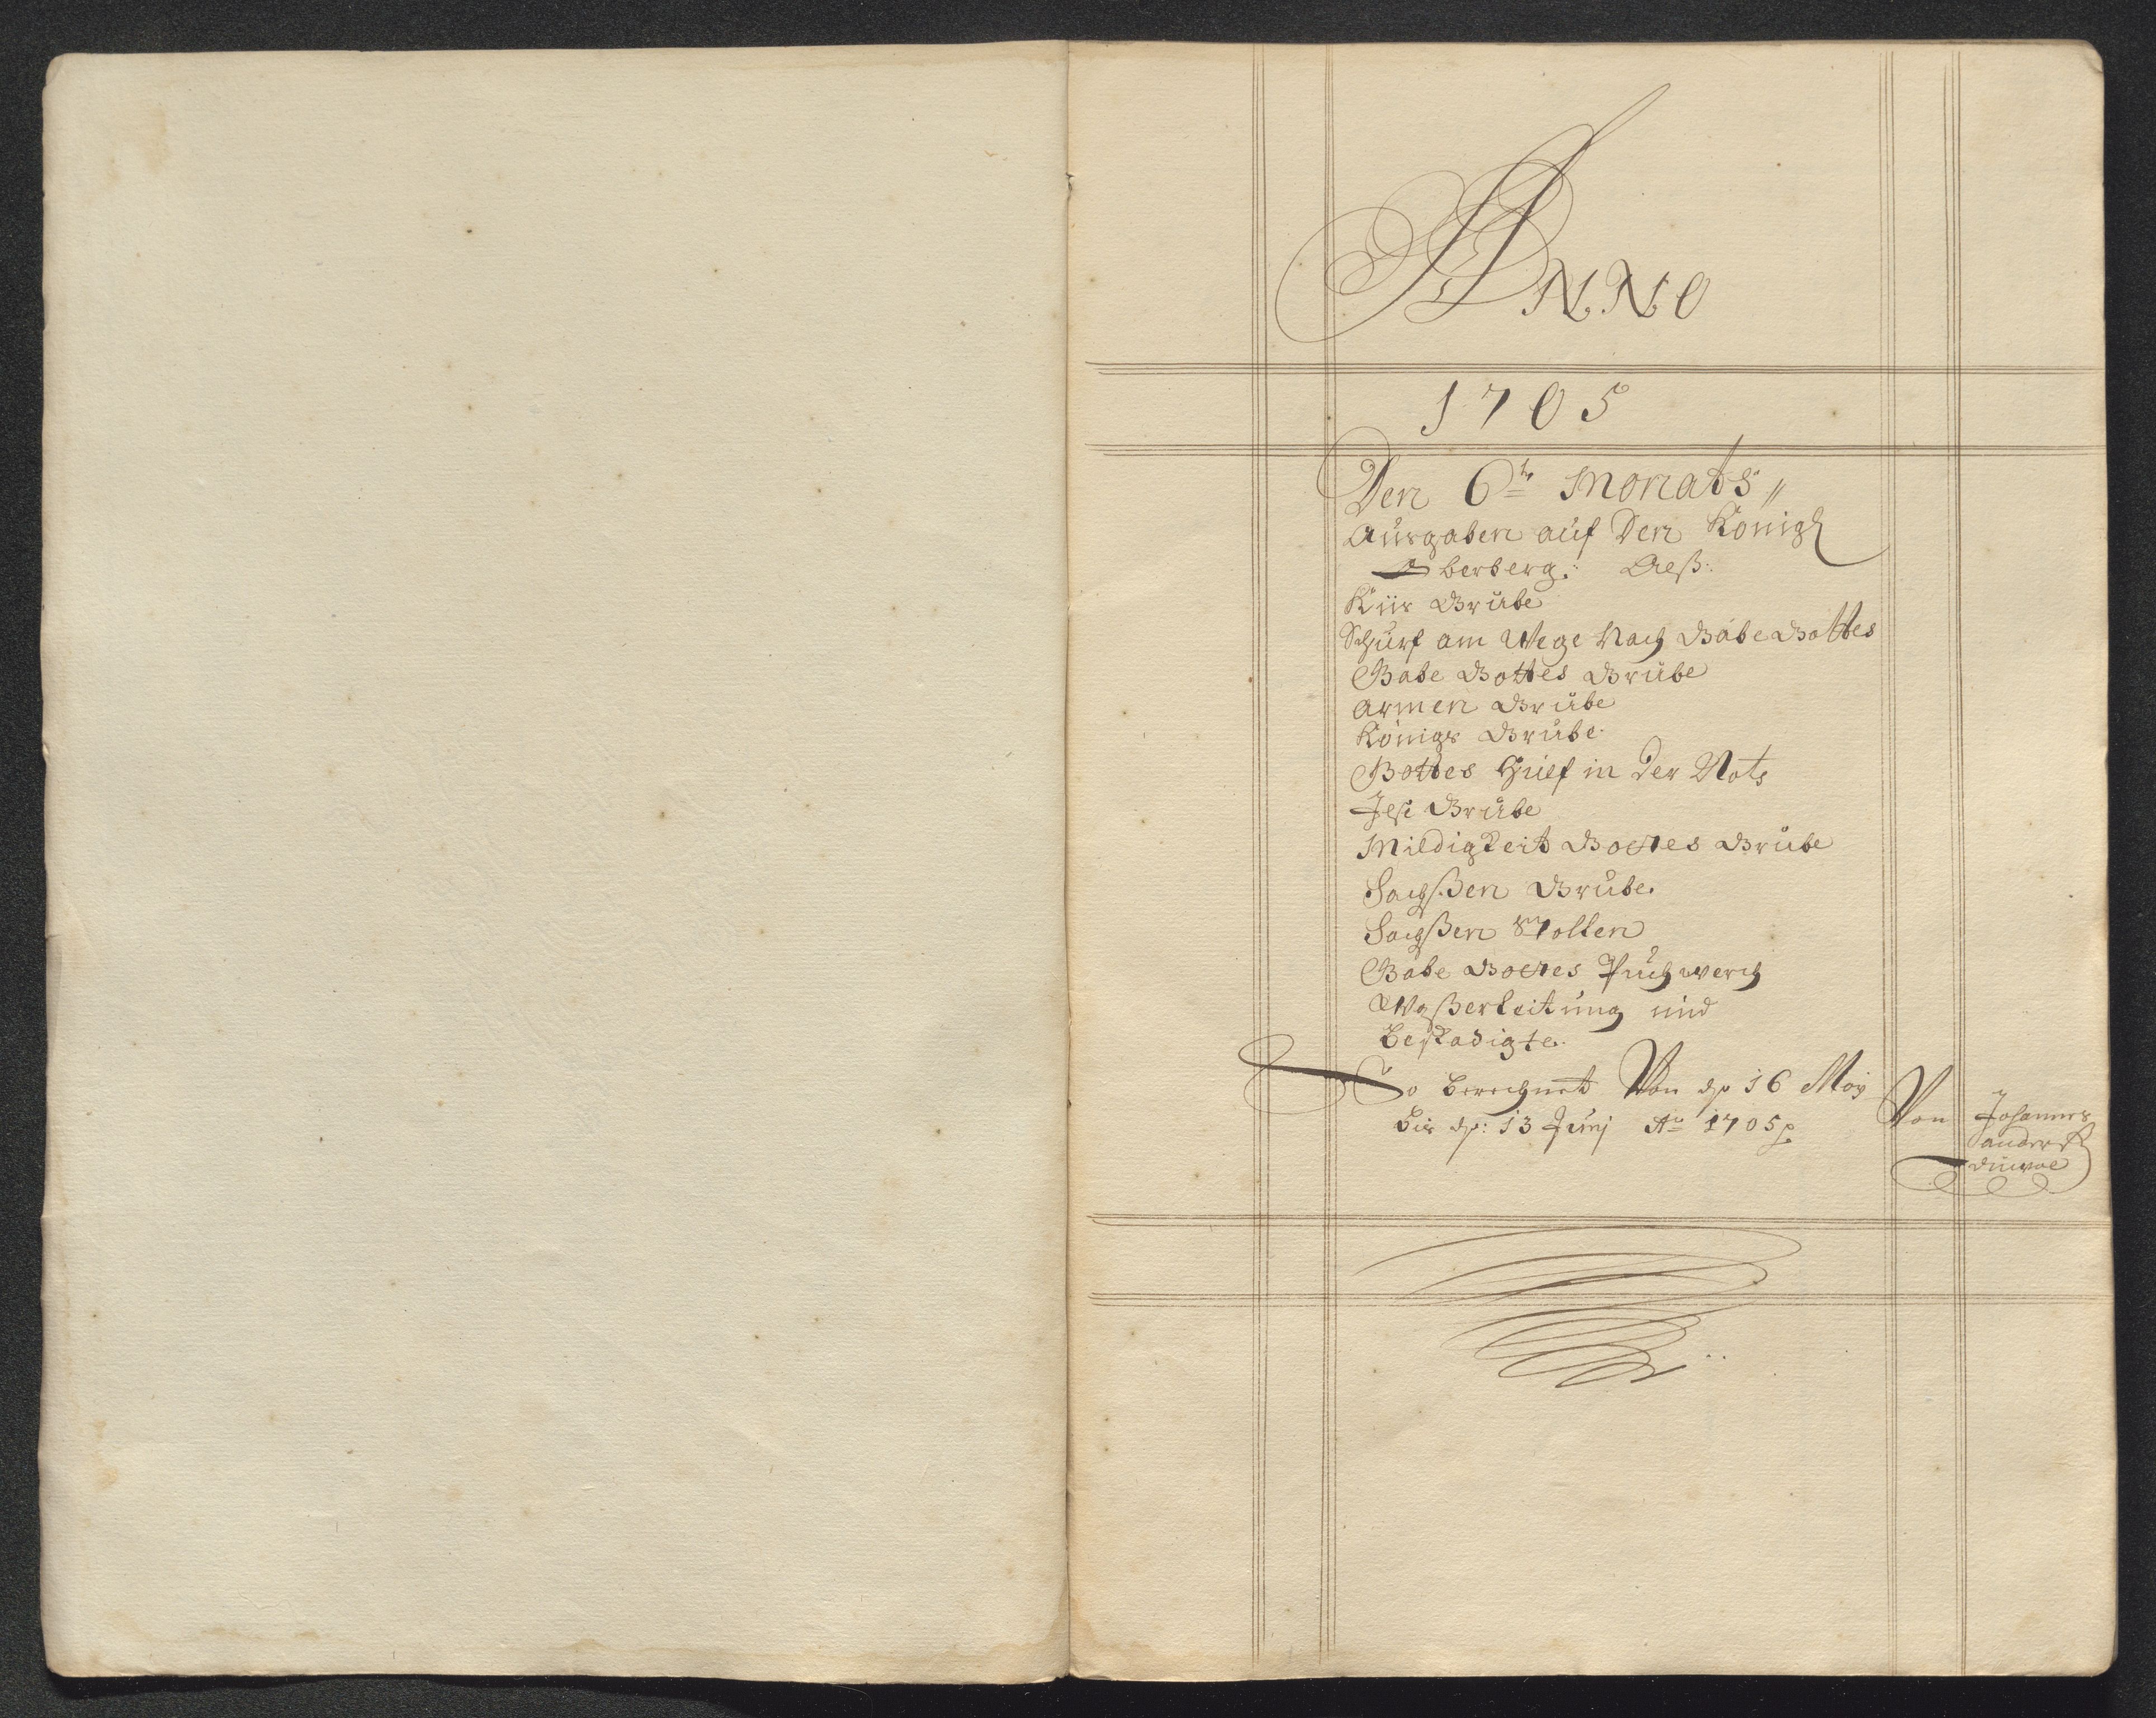 ANNO
1705
Den 6te Monats,,
Ausgaben auf Den Königl
Oberberg:
Küs Grube
Schurf am Wege Nach Gabe Gottes
Gabe Gottes Grube
Armen Grube
Königs Grube.
Gottes Hülf in der Noth
Jesu Grube
Mildigkeit Gottes Grube
Sachßen Grube.
Sachßen Stollen
Gabe Gottes Puchwerch
Waßerleitung und
Beschadigte.
So berechnet Von dh 16 Maÿ
bis dh: 13 Junj Ao 1705
Von Johannes
Anders